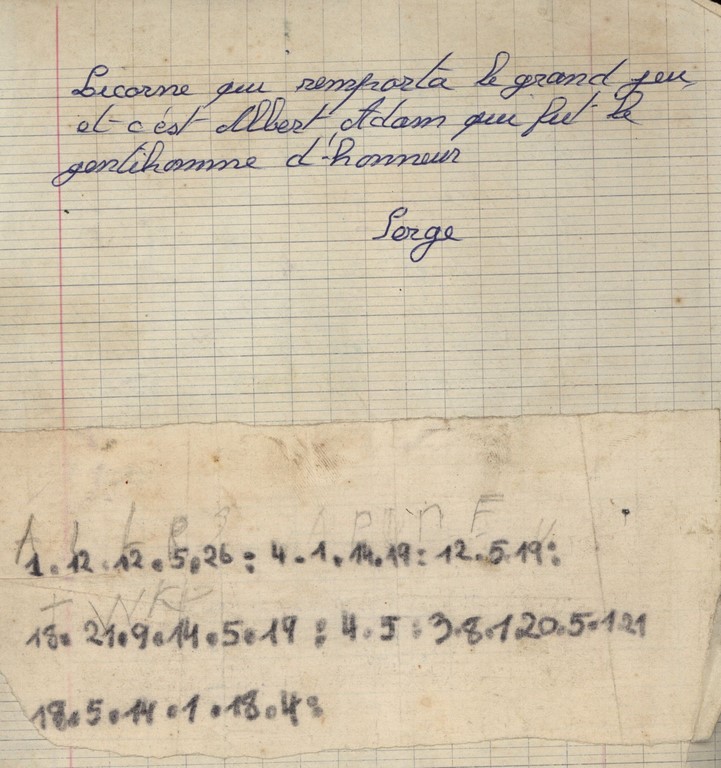 Licorne qui remporta le grand jeu,
et c'est Albert Adam qui fut le
gentihomme d'honneur
Serge
1.12.12.5.26: 4.1.14.19: 12.5.19:
18.21.9.14.5.19: 4.5: 3.8.1.20.5.1.21
18.5.14.1.18.4: